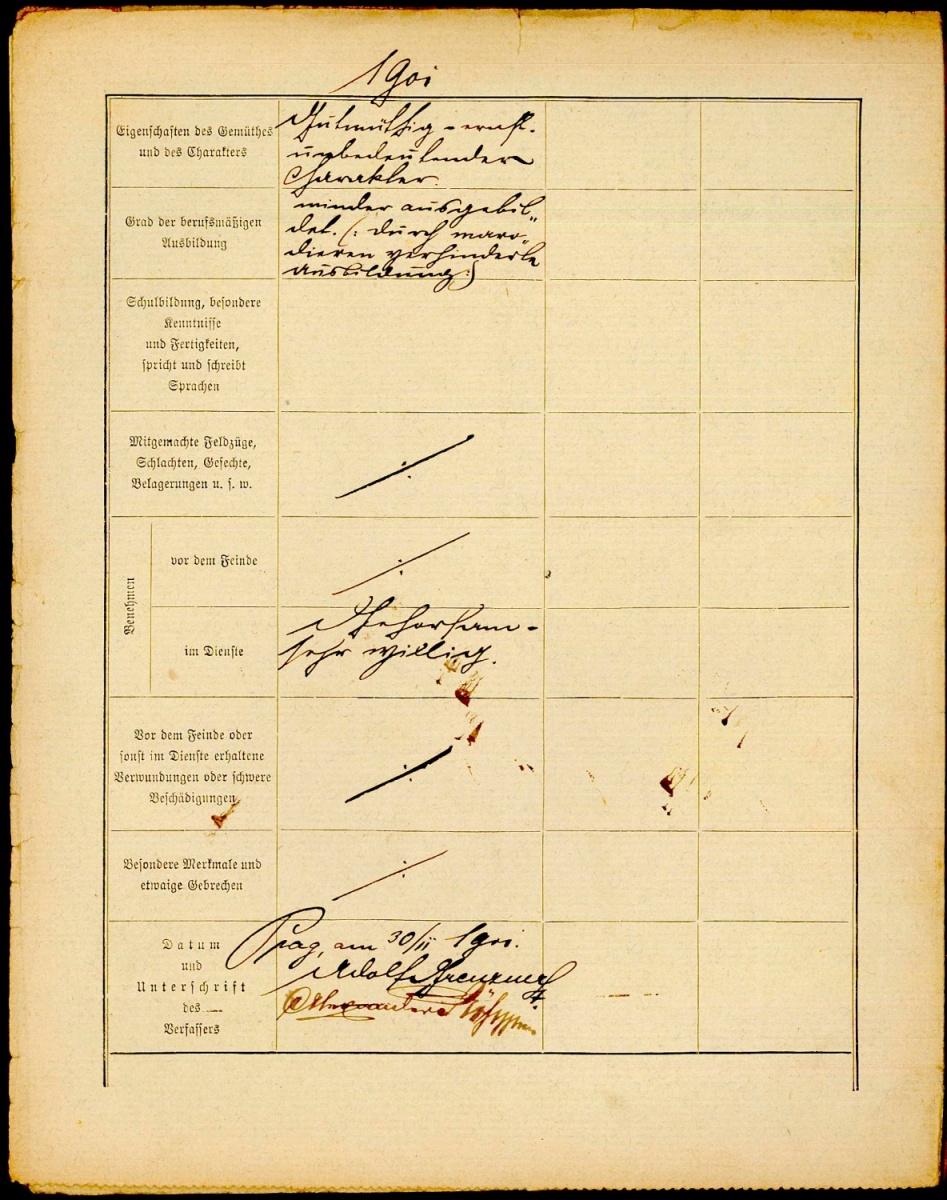 1901
Eigenschaften des Gemüthes
und des Charakters
Gutmüthig - ernst.
unbedeutender
Charakter.
Grad der berufsmäßigen
Ausbildung
minder ausgebil-
det. (: durch maro-
dieren verhinderte
Ausbildung :)
Schulbildung, besondere
Kenntnisse
und Fertigkeiten,
spricht und schreibt
Sprachen
Mitgemachte Feldzüge,
Schlachten, Gefechte,
Belagerungen u. s. w.
./.
Benehmen
vor dem Feinde
./.
im Dienste
Gehorsam -
sehr willig.
Vor dem Feinde oder
sonst im Dienste erhaltene
Verwundungen oder schwere
Beschädigungen
./.
Besondere Merkmale und
etwaige Gebrechen
./.
Datum
und
Unterschrift
des
Verfassers
Prag, am 30/11 1901.
Adolf